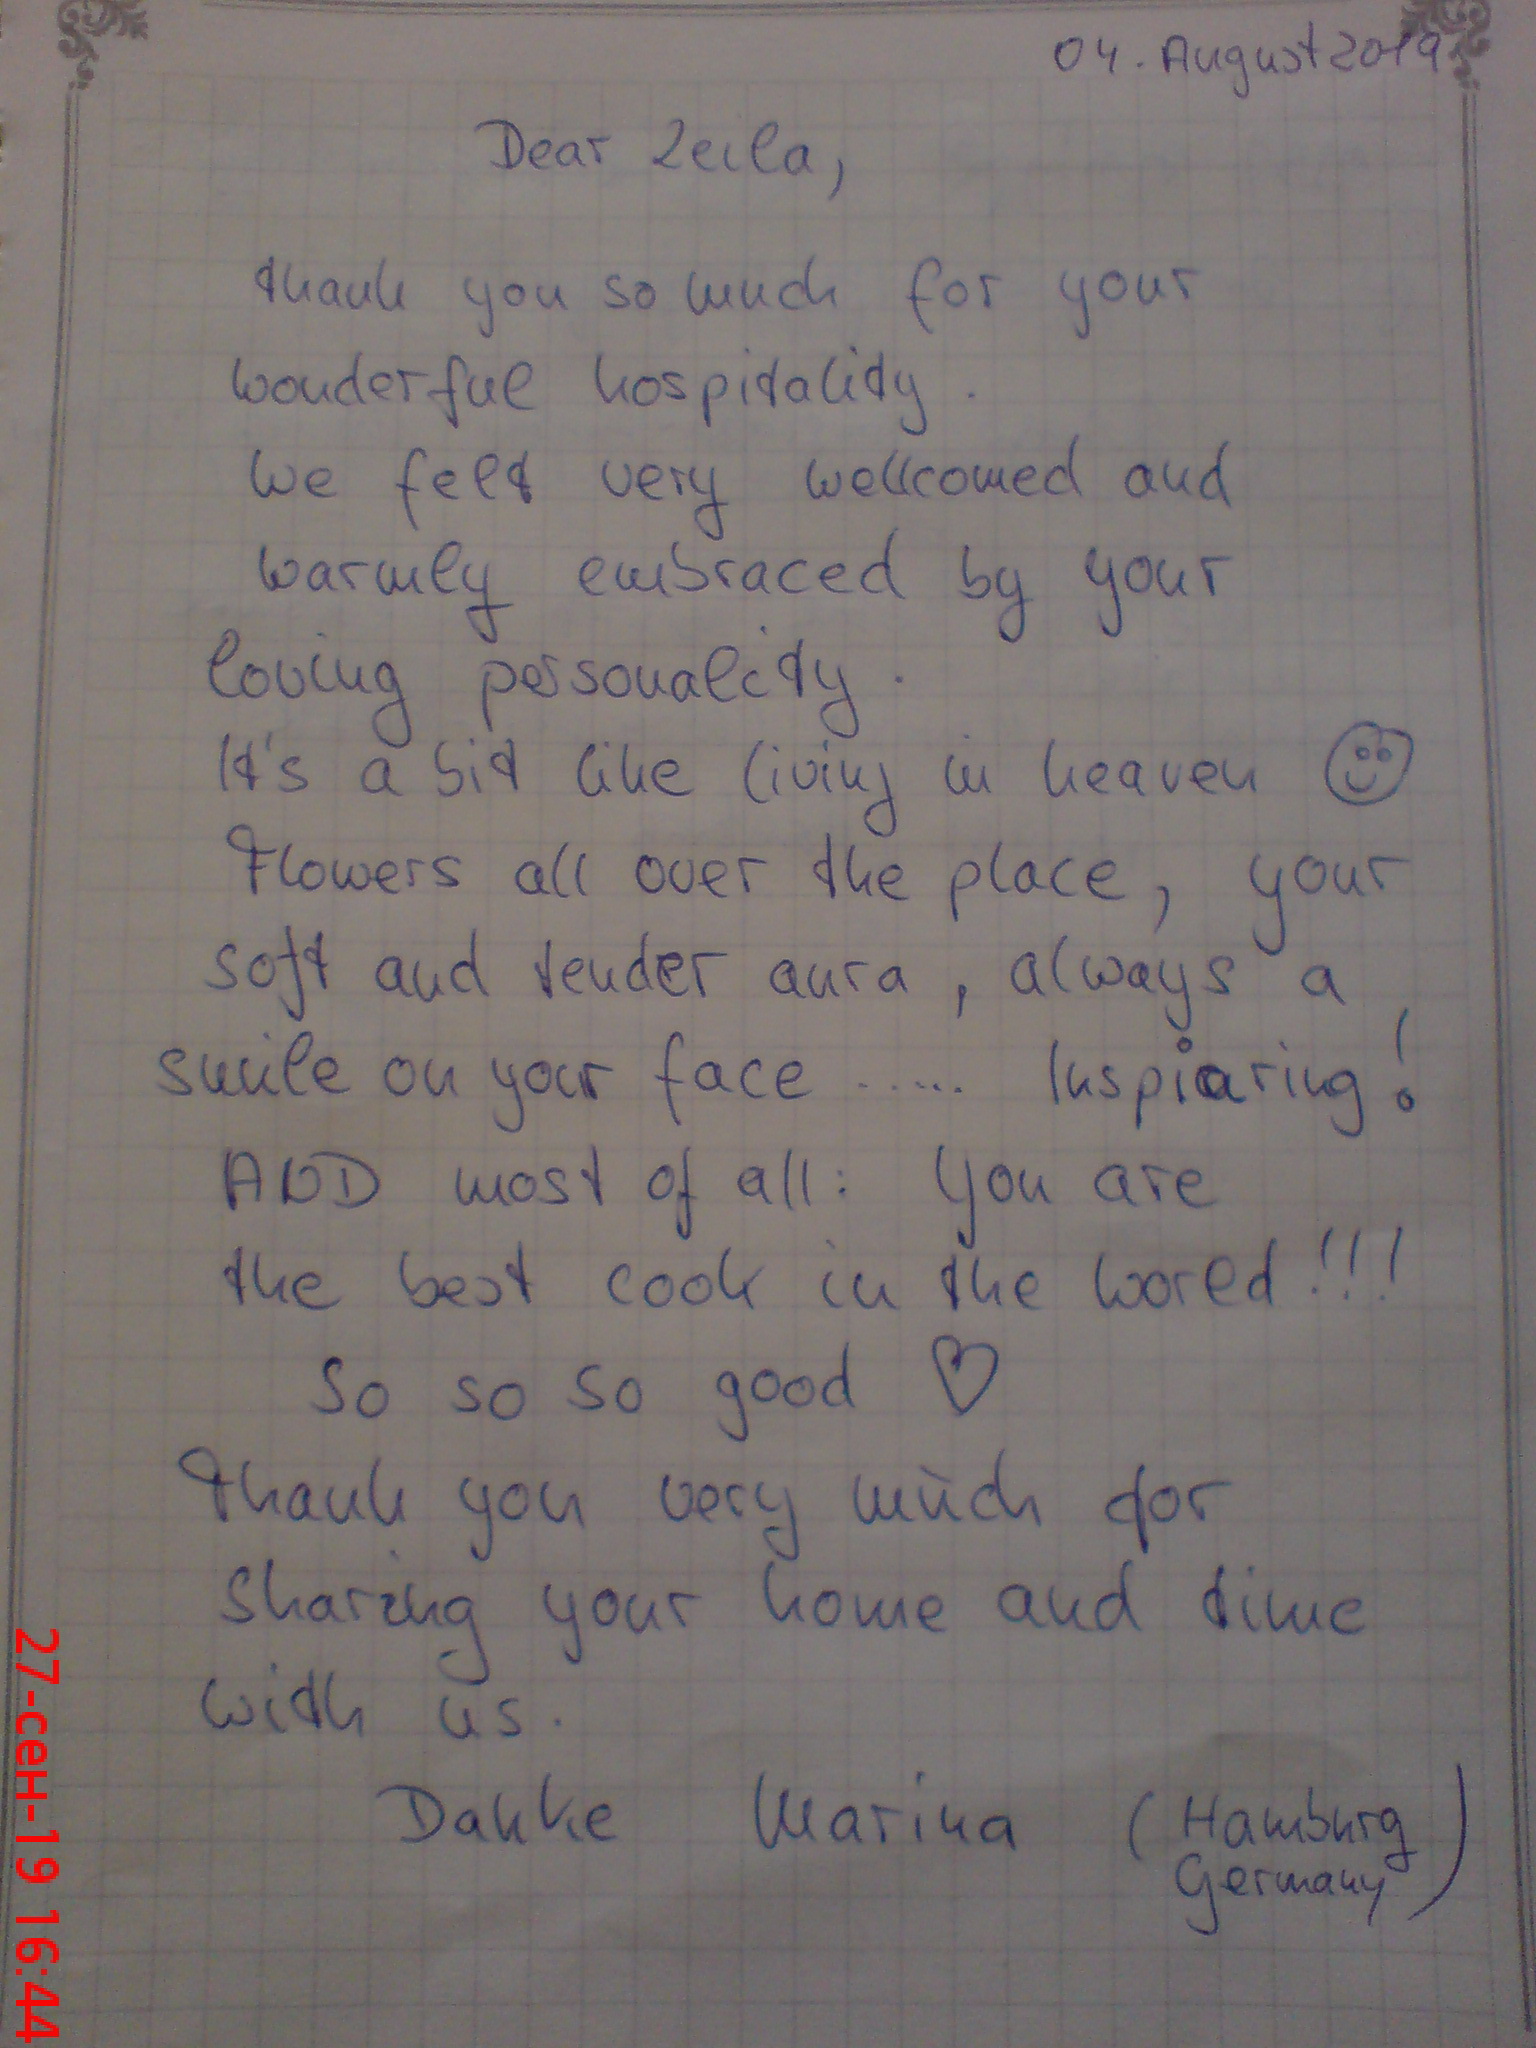 04. August 2019
Dear Leila,
thank you so much for your
wonderful hospitality.
We felt very wellcomed and
warmly embraced by your
loving personality.
It's a bit like living in heaven ☺
Flowers all over the place, your
soft and tender aura, always a
smile on your face ..... Inspiaring!
AND most of all: you are
the best cook in the world!!!
So so so good ♡
Thank you very much for
sharing your home and time
with us.
Danke Marina (Hamburg
Germany)
27-сен-19 16:44